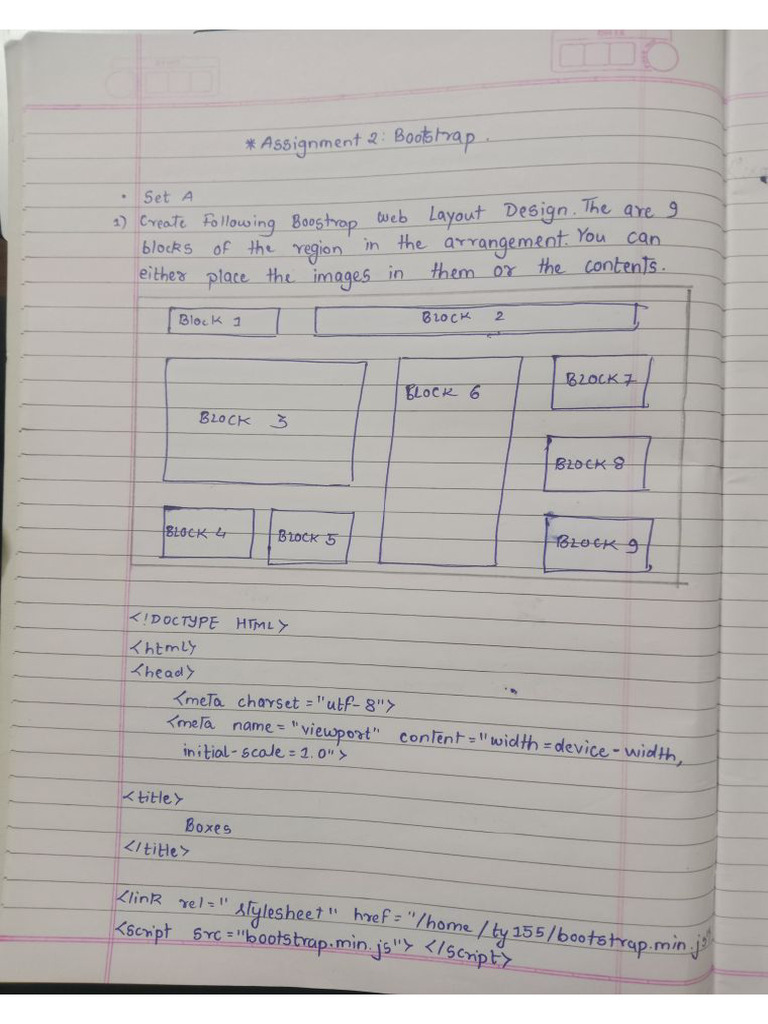 * Assignment 2: Bootstrap.
• Set A
1) Create Following Boostrap web Layout Design. The are 9
blocks of the region in the arrangement. You can
either place the images in them or the contents.
Block 1
BLOCK 2
BLOCK 3
BLOCK 6
BLOCK 7
BLOCK 8
BLOCK 4
BLOCK 5
BLOCK 9
<!DOCTYPE HTML>
<html>
<head>
<meta charset="utf-8">
<meta name="viewport" content="width=device-width,
initial-scale=1.0">
<title>
Boxes
</title>
<link rel="stylesheet" href="/home/ty155/bootstrap.min.js"
<script src="bootstrap.min.js"> </script>